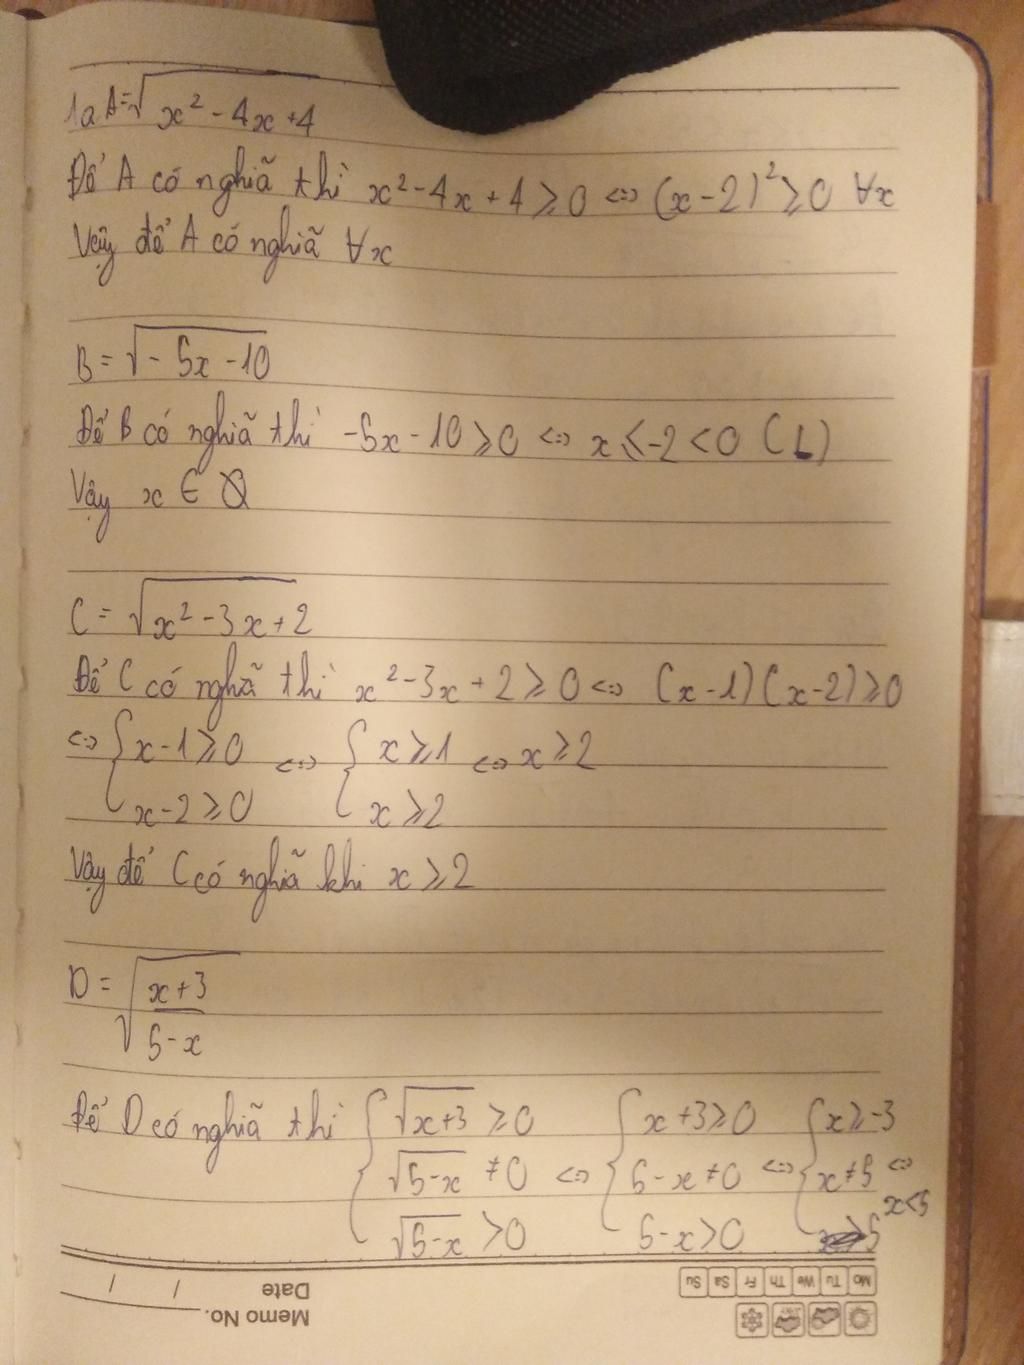 1a A = √(x² - 4x + 4)
Để A có nghiã thì x² - 4x + 4 ⩾ 0 <=> (x - 2)² ⩾ 0 ∀x
Vậy để A có nghiã ∀x
B = √(-5x - 10)
Để B có nghiã thì -5x - 10 ⩾ 0 <=> x ⩽ -2 < 0 (L)
Vậy x ∈ ∅
C = √(x² - 3x + 2)
Để C có nghiã thì x² - 3x + 2 ⩾ 0 <=> (x - 1)(x - 2) ⩾ 0
<=> { x - 1 ⩾ 0 <=> { x ⩾ 1 <=> x ⩾ 2
x - 2 ⩾ 0 x ⩾ 2
Vậy để C có nghiã khi x ⩾ 2
D = √((x + 3)/(5 - x))
Để D có nghiã thì { √(x+3) ⩾ 0 { x + 3 ⩾ 0 { x ⩾ -3
√(5-x) ≠ 0 <=> 5 - x ≠ 0 <=> x ≠ 5 <=>
√(5-x) > 0 5 - x > 0 x < 5
Memo No.
Date / /
Mo Tu We Th Fr Sa Su